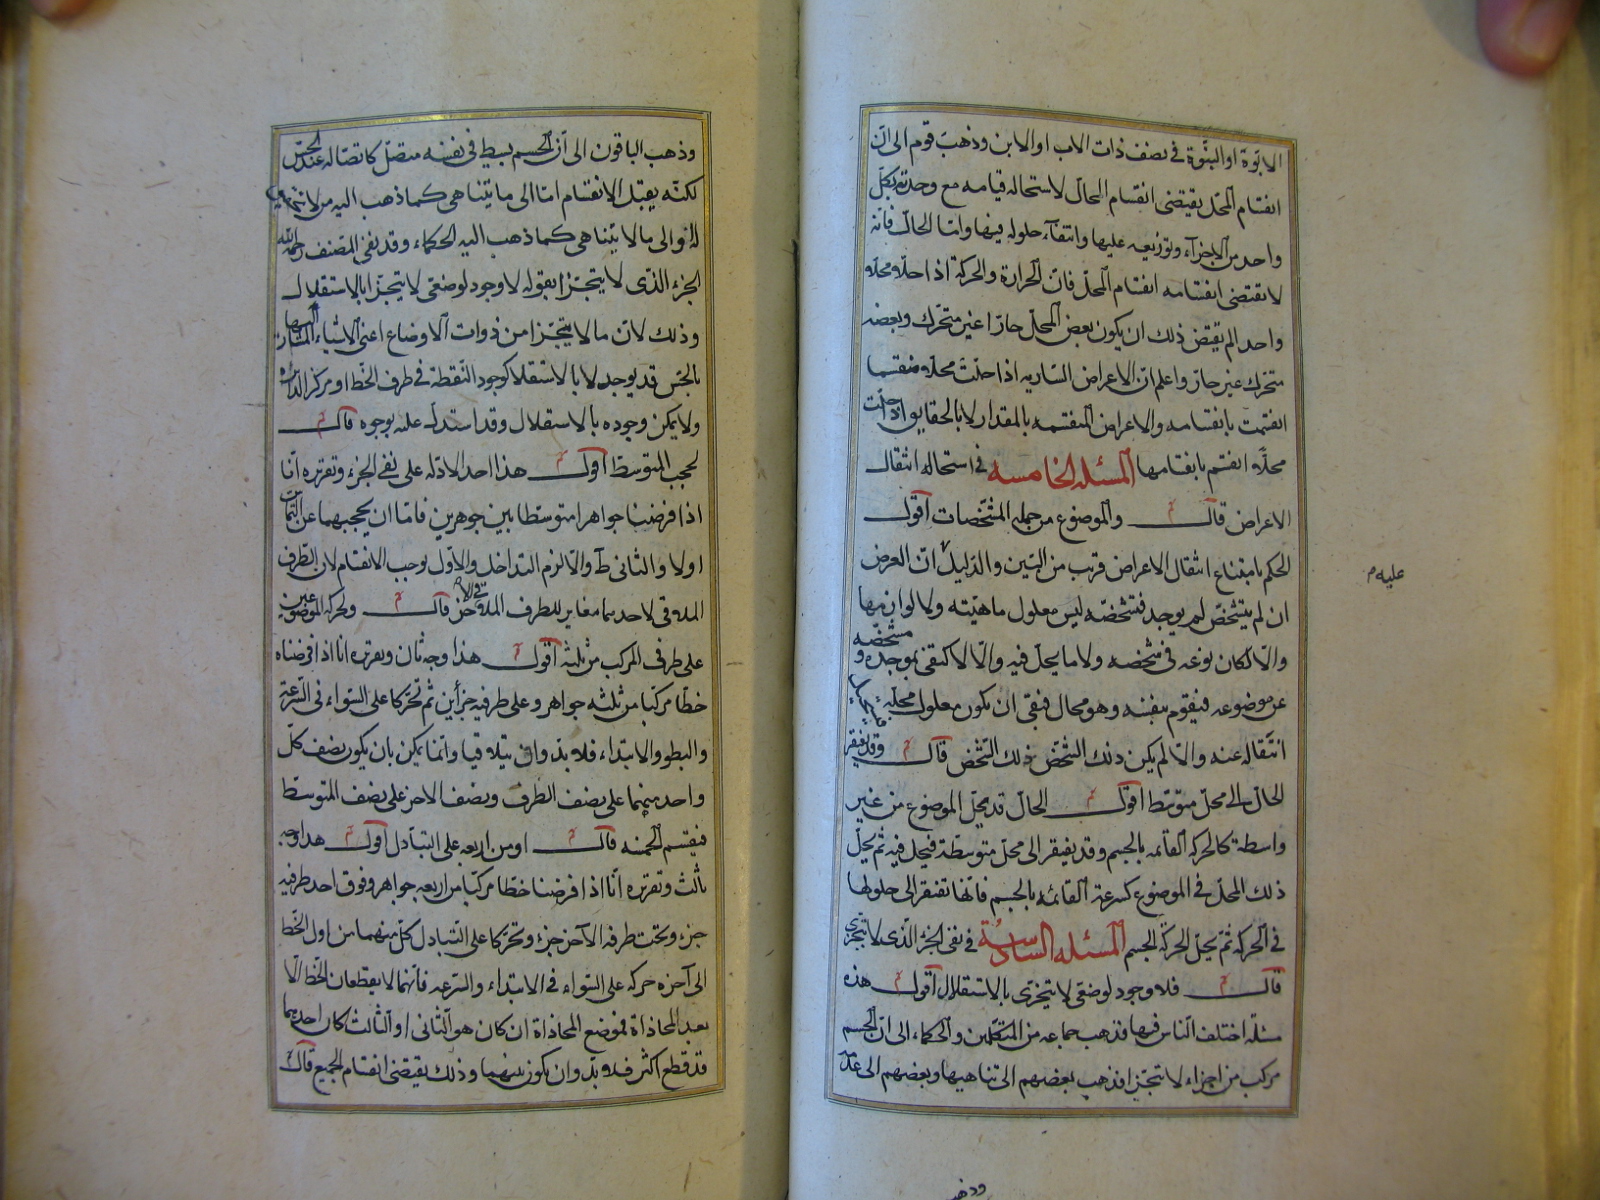 الابوة او البنوة في نصف ذات الاب او الابن وذهب قوم الى ان
انقسام المحل يقتضى انقسام الحال لاستحاله قيامه مع وحدته بكل
واحد من الاجزآء وتوزيعه عليها وانتفآء حلوله فيها واما الحال فانه
لا يقتضى انقسامه انقسام المحل فان الحرارة والحركة اذا حلا محلا
واحدا لم يقتض ذلك ان يكون بعض المحل حارا غير متحرك وبعضه
متحرك غير حار واعلم ان الاعراض الساريه اذا حلت محلا منقسما
انقسمت بانقسامه والاعراض المنقسمه بالمقدار لا بالحقايق اذا حلت
محلا انقسم بانقسامها المسئله الخامسه في استحاله انتقال
الاعراض قال م والموضوع من جمله المشخصات اقول
الحكم بامتناع انتقال الاعراض قريب من البين والدليل ان العرض
عليه م
ان لم يتشخص لم يوجد فتشخصه ليس معلول ماهيته ولا لوازمها
والا لكان نوعه في شخصه ولا ما يحل فيه والا لاكتفى بموجده و مشخصه
عن موضوعه فيقوم بنفسه وهو محال فبقى ان يكون معلول محله فيستحيل
انتقاله عنه والا لم يكن ذلك الشخص ذلك الشخص قال م وقد يفتقر
الحال الى محل متوسط اقول م الحال قد يحل الموضوع من غير
واسطة كالحركه القائمه بالجسم وقد يفتقر الى محل متوسط فيحل فيه ثم يحل
ذلك المحل في الموضوع كسرعة القائمه بالجسم فانها تفتقر الى حلولها
في الحركه ثم يحل الحركة الجسم المسئله السادسة في نفى الجزء الذى لا يتجزى
قال م فلا وجود لوضعى لا يتجزى بالاستقلال اقول م هذه
مسئله اختلف الناس فيها فذهب جماعه من المتكلمين والحكماء الى ان الجسم
مركب من اجزاء لا تتجزا فذهب بعضهم الى تناهيها وبعضهم الى عدمه
وذهب
وذهب الباقون الى ان الجسم بسيط في نفسه متصل كاتصاله عند الحس
لكنه يقبل الانقسام اما الى ما يتناهى كما ذهب اليه من لا تحقيق
له او الى ما لا يتناهى كما ذهب اليه الحكماء وقد نفى المصنف رحمه الله
الجزء الذى لا يتجزا بقوله لا وجود لوضعى لا يتجزا بالاستقلال
وذلك لان ما لا يتجزا من ذوات الاوضاع اعنى الاشياء المشار اليها
بالحس قد يوجد لا بالاستقلال كوجود النقطة في طرف الخط او مركز الدائره
ولا يمكن وجوده بالاستقلال وقد استدل عليه بوجوه قال م
لحجب المتوسط اقول م هذا احد الادله على نفى الجزء وتقريره انا
اذا فرضنا جوهرا متوسطا بين جوهرين فاما ان يحجبهما عن التماس
اولا والثانى ط والا لزم التداخل والاول يوجب الانقسام لان الطرف
الملاقى لاحدهما مغاير للطرف الملاقى الاخر قال م ولحركه الموضوعين
على طرفى المركب من ثلثه اقول م هذا وجه ثان وتقريره انا اذا فرضناه
خطا مركبا من ثلثه جواهر وعلى طرفيه جزأين ثم تحركا على السواء فى السرعة
والبطو والابتداء فلا بد وان يتلاقيا وانما يمكن بان يكون نصف كل
واحد منهما على نصف الطرف ونصف الاخر على نصف المتوسط
فيقسم الخمسه قال م او من اربعه على التبادل اقول م هذا وجه
ثالث وتقريره انا اذا فرضنا خطا مركبا من اربعه جواهر وفوق احد طرفيه
جزء وتحت طرفه الآخر جزء وتحركا على التبادل كل منهما من اول الخط
الى آخره حركه على السواء في الابتداء والسرعه فانهما لا يقطعان الخط الا
بعد المحاذاة فموضع المحاذاة ان كان هو الثانى او الثالث كان احدهما
قد قطع اكثر فلا بد وان يكون بينهما وذلك يقتضى انقسام الجميع قال م